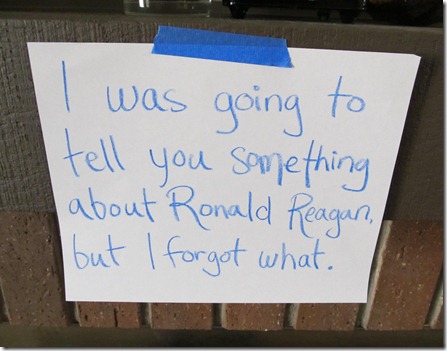 I was going to
tell you something
about Ronald Reagan,
but I forgot what.